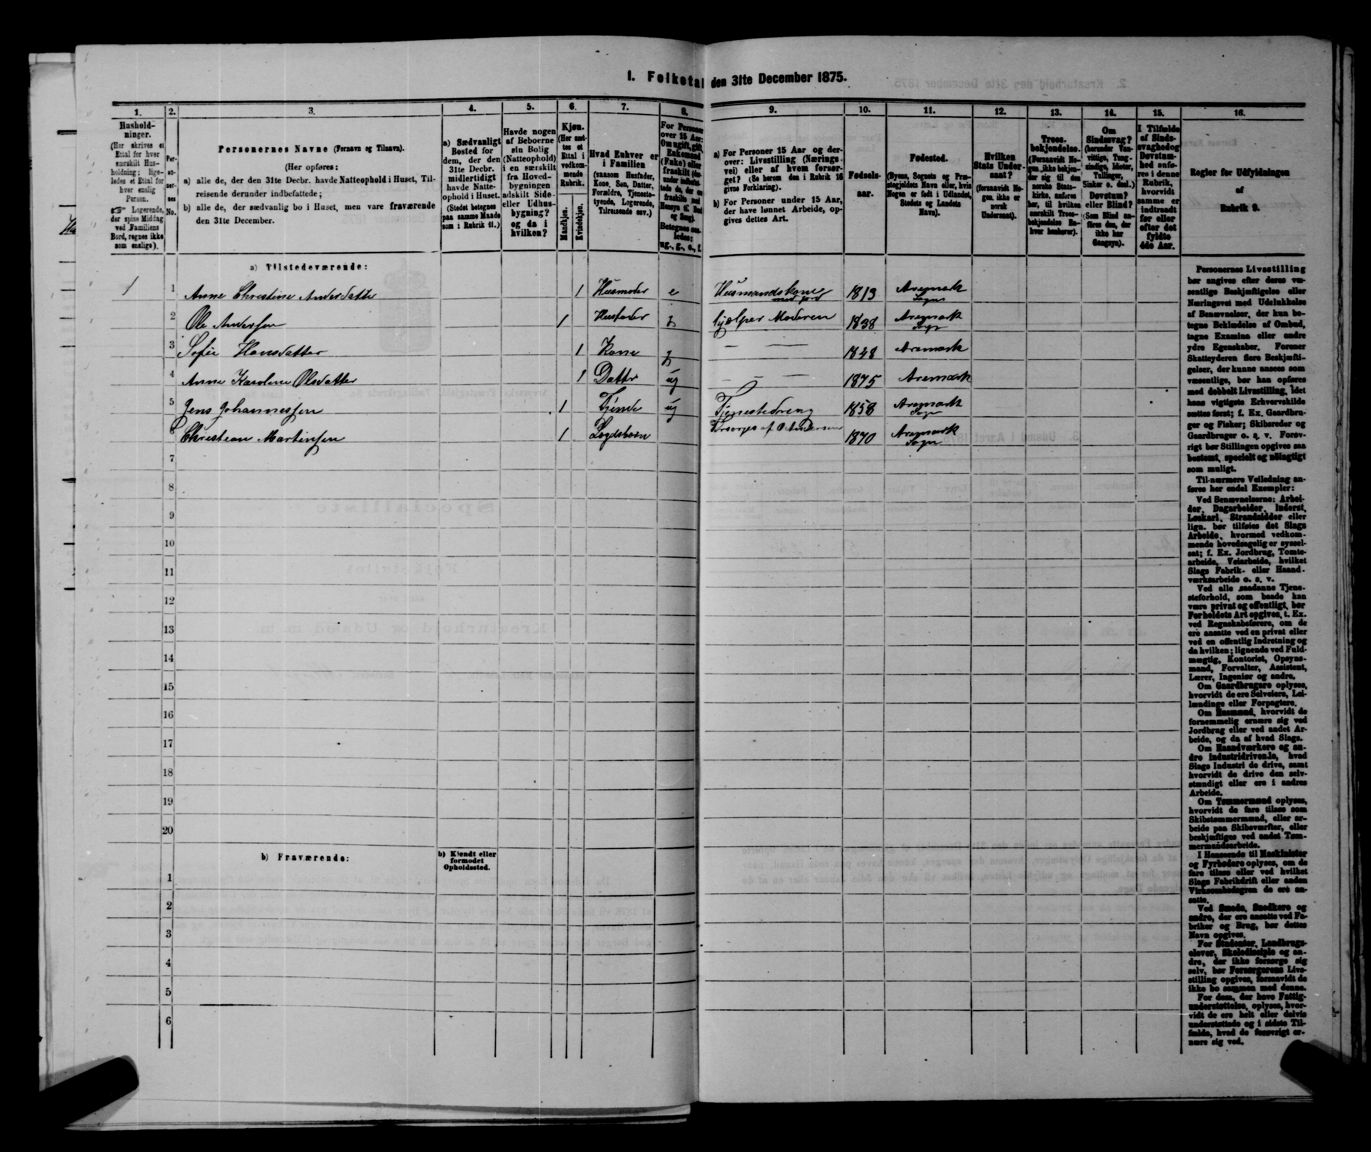 I. Folketal den 31te December 1875.
1. 2. 3. 4. 5. 6. 7. 8. 9. 10. 11. 12. 13. 14. 15. 16.
Hushold-
ninger.
(Her skrives et
Ettal for hver
særskilt Hus-
holdning; lige-
ledes et Ettal for
hver enslig
Person.
Logerende,
der spise Middag
ved Familiens
Bord, regnes ikke
som enslige).
Personernes Navne (Fornavn og Tilnavn).
(Her opføres:
a) alle de, der den 31te Decbr. havde Natteophold i Huset, Til-
reisende derunder indbefattede;
b) alle de, der sædvanlig bo i Huset, men vare fraværende
den 31te December.
a) Sædvanligt
Bosted for
dem, der den
31te Decbr.
midlertidigt
havde Natte-
ophold i Huset.
(Stedet betegnes
paa samme Maade
som i Rubrik 11.)
Havde nogen
af Beboerne
sin Bolig
(Natteophold)
i en særskilt
fra Hoved-
bygningen
adskilt Side-
eller Udhus-
bygning?
og da i
hvilken?
Kjøn.
(Her sæt-
tes et
Ettal i
vedkom-
mende
Rubrik.
Mandkjøn.
Kvindekjøn.
Hvad Enhver er
i Familien
(saasom Husfader,
Kone, Søn, Datter,
Forældre, Tjeneste-
tyende, Logerende,
Tilreisende osv.)
For Personer
over 15 Aar:
a) For Personer 15 Aar og der-
over: Livsstilling (Nærings-
vei) eller af hvem forsør-
get? (Se herom den i Rubrik 16
givne Forklaring).
b) For Personer under 15 Aar,
der have lønnet Arbeide, op-
gives dettes Art.
Fødsels-
aar.
Fødested.
(Byens, Sognets og Præ-
stegjeldets Navn eller, hvis
Nogen er født i Udlandet,
Stedets og Landets
Navn).
Hvilken
Stats Under-
saat?
(forsaavidt No-
gen ikke er
norsk
Undersaat).
Troes-
bekjendelse.
Om
Sindssvag?
Døvstum?
eller Blind?
I Tilfælde
af Sinds-
svaghed og
Døvstum-
hed anfø-
res i denne
Rubrik,
hvorvidt
samme er
indtraadt
før eller
efter det
fyldte
4de Aar.
Regler for Udfyldningen
af
Rubrik 9.
a) Tilstedeværende:
1 1 Anne Christine Andersdatter 1 Husmoder e Husmandskone med jord 1813 Aremark Sogn
2 Ole Andersen 1 Husfader g hjælper Moderen 1838 Aremark Sogn
3 Sofie Hansdatter 1 Kone g — — 1848 Aremark
4 Anne Karoline Olsdatter 1 Datter ug — — — 1875 Aremark
5 Jens Johannessen 1 Tjener ug Tjenestedreng 1858 Aremark Sogn
6 Christian Martinsen 1 Forsørges af O Andersen 1870 Aremark Sogn
7
8
9
10
11
12
13
14
15
16
17
18
19
20
b) Fraværende: b) Kjendt eller
formodet
Opholdssted.
1
2
3
4
5
6
Personernes Livsstilling
bør angives efter deres væ-
sentlige Beskjæftigelse eller
Næringsvei med Udelukkelse
af Benævnelser, der kun be-
tegne Beklædelse af Ombud,
tagne Examina eller andre
ydre Egenskaber. Forener
Skatteyderen flere Beskjæfti-
gelser, der kunne ansees som
væsentlige, bør han opføres
med dobbelt Livsstilling, idet
hans vigtigste Erhvervskilde
sættes først; f. Ex. Gaardbru-
ger og Fisker; Skibsreder og
Gaardbruger o. s. v. Forøv-
rigt bør Stillingen opgives saa
bestemt, specielt og nøiagtigt
som muligt.
Til nærmere Veiledning an-
føres her endel Exempler:
Ved Benævnelserne: Arbei-
der, Dagarbeider, Inderst,
Løskarl, Strandsidder eller
lign. bør tilføies det Slags
Arbeide, hvormed vedkom-
mende hovedsagelig er syssel-
sat; f. Ex. Jordbrug, Tomte-
arbeide, Veiarbeide, hvilket
Slags Fabrik- eller Haand-
værksarbeide o. s. v.
Ved alle saadanne Tjene-
steforhold, som baade kan
være privat og offentligt, bør
Forholdets Art opgives, f. Ex.
ved Regnskabsførere, om de
ere ansatte ved en privat eller
ved en offentlig Indretning og
da hvilken; lignende ved Fuld-
mægtig, Kontorist, Opsyns-
mand, Forvalter, Assistent,
Lærer, Ingeniør og andre.
Om Gaardbrugere oplyses,
hvorvidt de ere Selveiere, Lei-
lændinge eller Forpagtere.
Om Husmænd, hvorvidt de
fornemmelig ernære sig ved
Jordbrug eller ved andet Ar-
beide, og da af hvad Slags.
Om Haandværkere og an-
dre Industridrivende, hvad
Slags Industri de drive, samt
hvorvidt de drive den selv-
stændigt eller ere i andres
Arbeide.
Om Tømmermænd oplyses,
hvorvidt de fare tilsøs som
Skibstømmermænd, eller ar-
beide paa Skibsværfter, eller
beskjæftiges ved andet Tøm-
mermandsarbeide.
I Henseende til Maskinister
og Fyrbødere oplyses, om de
fare tilsøs eller ved hvilket
Slags Fabrikdrift eller anden
Virksomhedsgren de ere an-
satte.
Ved Smede, Snedkere og
andre, der ere ansatte ved Fa-
briker og Brug, bør dettes
Navn opgives.
For Studenter, Landbrugs-
elever, Skoledisciple og an-
dre, der ikke forsørge sig
selv, bør Forsørgerens Livs-
stilling opgives, forsaavidt de
ikke bo sammen med denne.
For dem, der have Fattig-
understøttelse, oplyses, hvor-
vidt de ere helt eller delvis
understøttede og i sidste Til-
fælde, hvad de forøvrigt er-
nære sig ved.